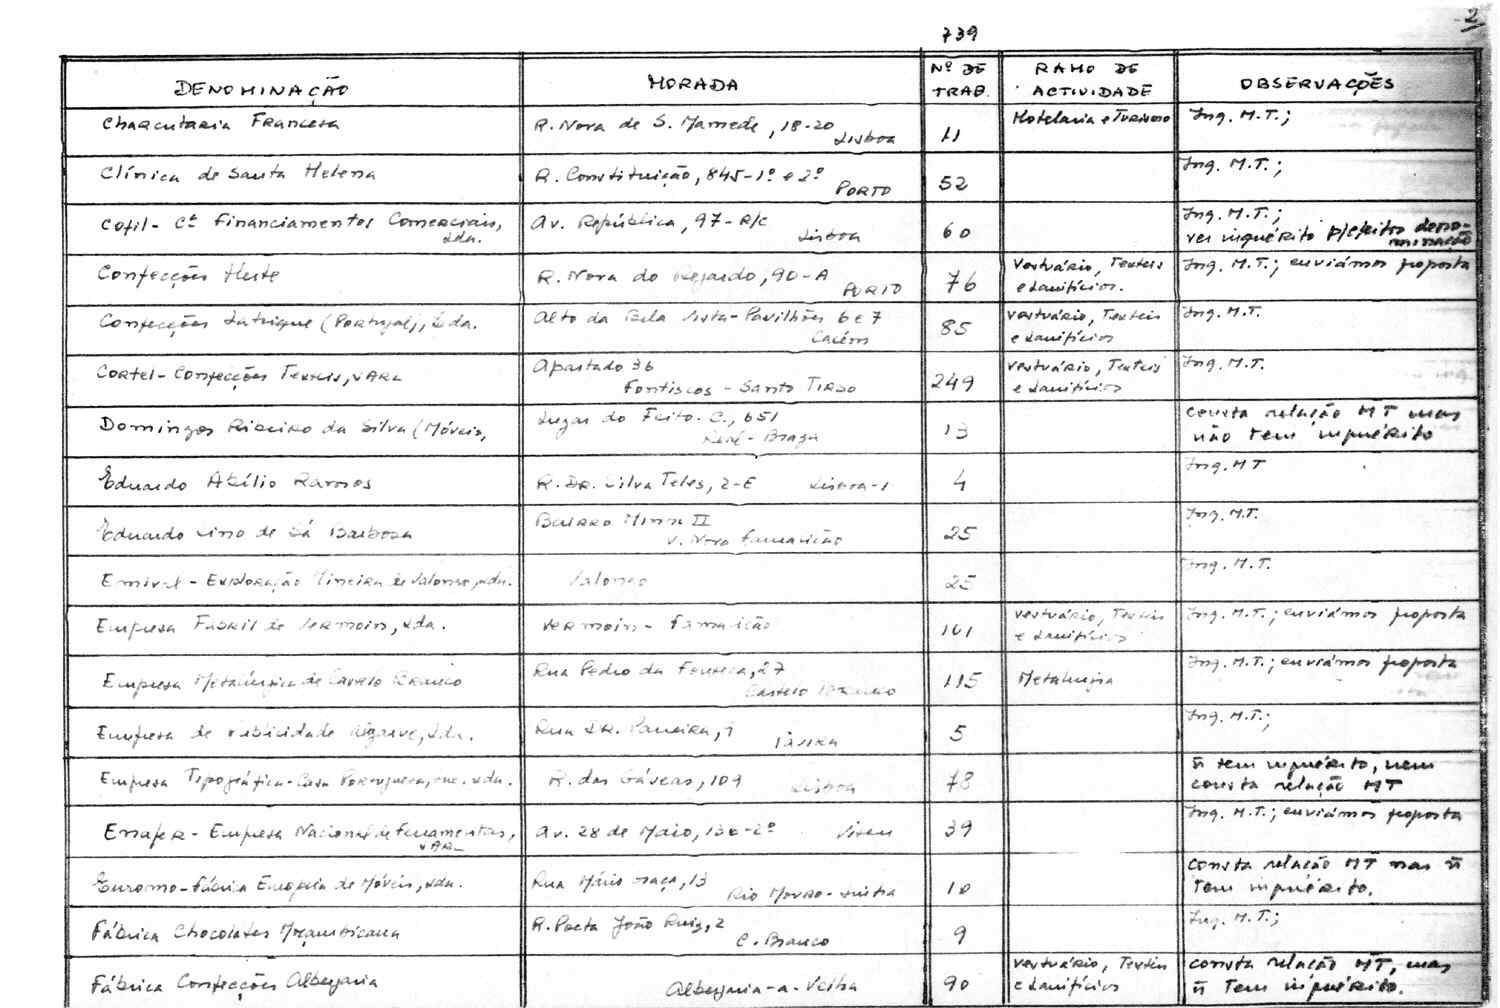 2
739
DENOMINAÇÃO
MORADA
Nº DE
TRAB.
RAMO DE
ACTIVIDADE
OBSERVAÇÕES
Charcutaria Francesa
R. Nova de S. Mamede, 18-20
Lisboa
11
Hotelaria e Turismo
Inq. M.T.;
Clínica de Santa Helena
R. Constituição, 845-1º e 2º
PORTO
52
Inq. M.T.;
Cofil- Cª Financiamentos Comerciais,
Lda.
Av. República, 97-R/C
Lisboa
60
Inq. M.T.;
ver inquérito p/efeitos deno-
minação
Confecções
R. Nova do Regado, 90-A
PORTO
76
Vestuário, Texteis
e Lanifícios.
Inq. M.T.; enviámos proposta
Confecções (Portugal), Lda.
Alto da Bela Vista-Pavilhões 6 e 7
Cacém
85
Vestuário, Texteis
e Lanifícios
Inq. M.T.
Cortel-Confecções Texteis, SARL
Apartado 36
Fontiscos - Santo Tirso
249
Vestuário, Texteis
e Lanifícios
Inq. M.T.
Domingos Ribeiro da Silva (Móveis,
Lugar do Feito. C., 651
- Braga
13
consta relação MT mas
não tem inquérito
Eduardo Abílio Ramos
R. DR. Silva Teles, 2-E Lisboa-1
4
Inq. MT
Eduardo Lino de Sá Barbosa
Bairro II
V. Nova Famalicão
25
Inq. M.T.
Emival - Exploração Mineira de Valongo, Lda.
Valongo
25
Inq. M.T.
Empresa Fabril de Vermoim, Lda.
Vermoim - Famalicão
101
Vestuário, Texteis
e Lanifícios
Inq. M.T.; enviámos proposta
Empresa Metalúrgica de Castelo Branco
Rua Pedro da Fonseca, 27
Castelo Branco
115
Metalurgia
Inq. M.T.; enviámos proposta
Empresa de Publicidade Algarve, Lda.
Rua DR. Parreira,
Tavira
5
Inq. M.T.;
Empresa Tipográfica-Casa Portuguesa, Lda.
R. das Gáveas, 109
Lisboa
78
ñ tem inquérito, nem
consta relação MT
Enafer - Empresa Nacional de Ferramentas,
SARL
Av. 28 de Maio, 130-2º Viseu
39
Inq. M.T.; enviámos proposta
Euromo-Fábrica Europeia de Móveis, Lda.
Rua Mário, 13
Rio Mouro-Sintra
10
consta relação MT mas ñ
tem inquérito.
Fábrica Chocolates Moçambicana
R. Poeta João Ruiz, 2
C. Branco
9
Inq. M.T.;
Fábrica Confecções Albergaria
Albergaria-a-Velha
90
Vestuário, Texteis
e Lanifícios
consta relação MT, mas
ñ tem inquérito.